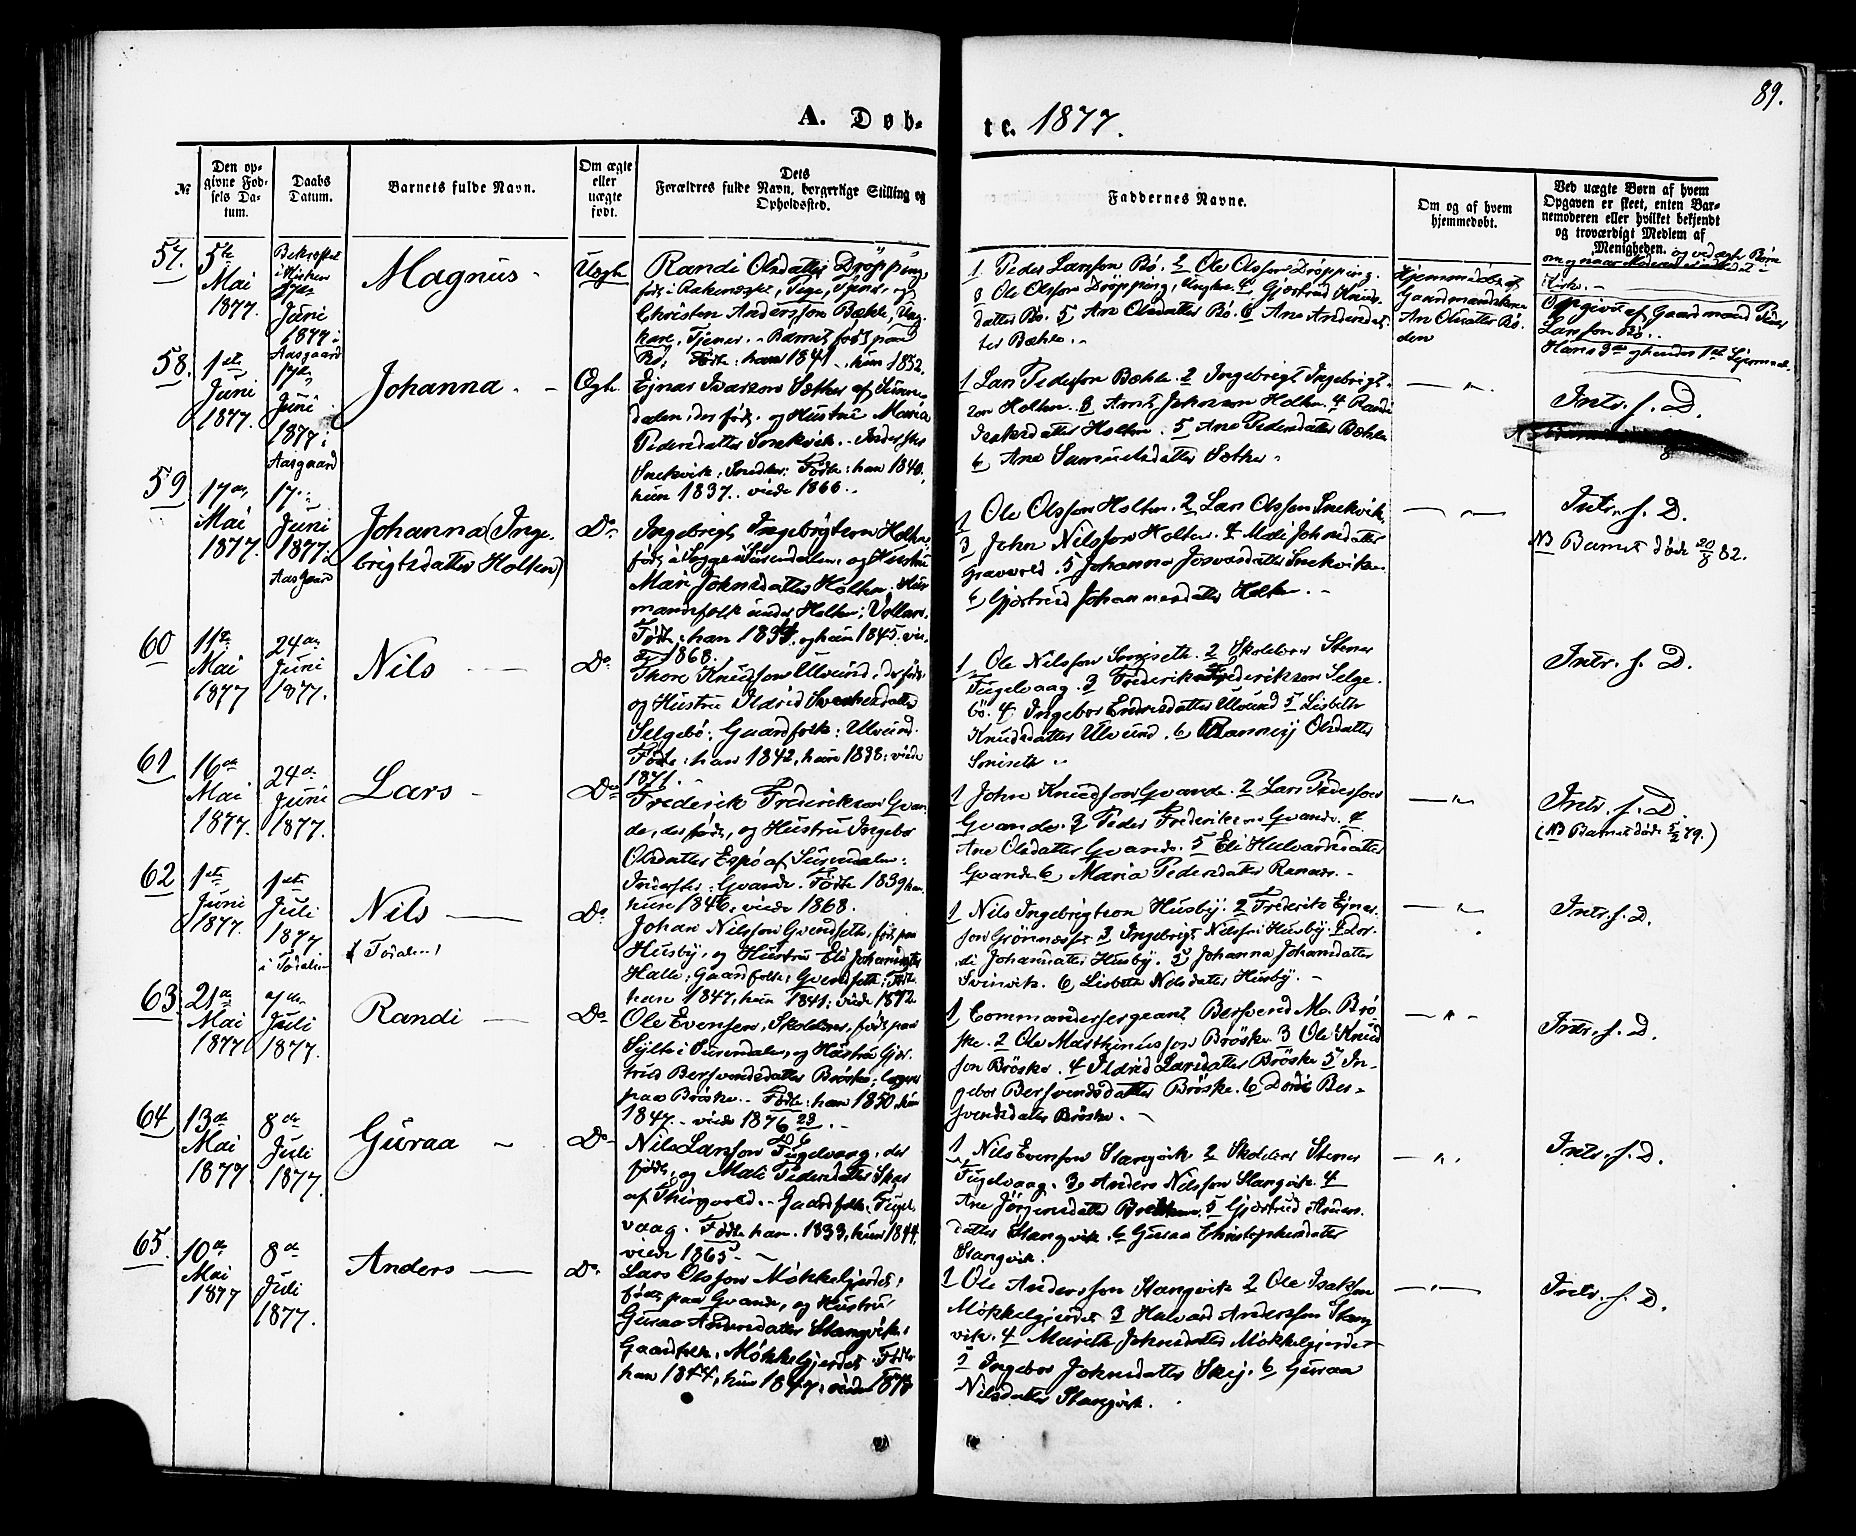 89.
A. Døb-
te. 1877.
№
Den op-
givne Fød-
sels Da-
tum.
Daabs
Datum.
Barnets fulde Navn.
Om ægte
eller
uægte
født.
Dets
Forældres fulde Navn, borgerlige Stilling og
Opholdssted.
Faddernes Navne.
Om og af hvem
hjemmedøbt.
Ved uægte Børn af hvem
Opgaven er skeet, enten Bar-
nemoderen eller hvilket bekjendt
og troværdigt Medlem af
Menigheden.
57.
5te
Mai
1877.
i Kirken
17de
Juni
1877 i
Aasgaard
Magnus
Uægte
Randi Olsdatter Dröpping,
og
Christen Andersson Bækle,
Tjener. Barnet født paa
Bø. Født: han 1841, hun 1852.
1 Peder Larsson Bø. 2 Ole Olsson Dröpping.
3 Ole Olsson Dröpping, Ungkar. 4 Gjertrud Knuds-
datter Bø. 5 Ane Olsdatter Bø. 6 Ane Andersdat-
ter Bækle.
Hjemmedøbt af
Gaardmandskone
Ane Olsdatter Bø.
Opgivet af Gaardmand Peder
Larsson Bø.
58.
1ste
Juni
1877.
17de
Juni
1877 i
Aasgaard
Johanna
Ægte
Ejnar Ivarson Sæther af Suren-
dalen, der født, og Hustru Maria
Pedersdatter Snekvik. Inderster
Snekvik. Født: han 1840,
hun 1837. viede 1866.
1 Lars Pederson Bækle. 2 Ingebrigt Ingebrigt-
son Holten. 3 Arnt Johnson Holten. 4 Randi
Holten. 5 Ane Pedersdatter Bækle
6 Ane Samuelsdatter Sæther.
— " —
Intr. s. D.
59
17de
Mai
1877.
17de
Juni
1877 i
Aasgaard
Johanna (Inge-
brigtsdatter Holten)
Do
Ingebrigt Ingebrigtson Holten,
født i Surendalen, og Hustru
Mari Johnsdatter Holten. Hus-
mandsfolk under Holten.
Født: han 1834 og hun 1845. vie-
de 1868.
1 Ole Olsson Holten. 2 Lars Olsson Snekvik,
3 John Nilsson Holten. 4 Mali Johnsdatter
5 Johanna Snekvik.
6 Gjertrud Johannesdatter Holten.
— " —
Intr. s. D.
NB Barnet døde 20/8 82.
60
11te
Mai
1877
24de
Juni
1877.
Nils
Do
Thore Knudson Ulvund, der født,
og Hustru Ildrid
Selgebö: Gaardfolk: Ulvund.
Født: han 1842, hun 1838: viede
1871.
1 Ole Nilsson Soniseth. 2 Skolelærer Stener
Fugelvaag. 3 Frederik Frederikson Selge-
bö. 4 Ingebor Endresdatter Ulvund 5 Lisbeth
Knudsdatter Ulvund. 6 Rannvej Olsdatter
Soniseth.
Intr. s. D.
61
16de
Mai
1877.
24de
Juni
1877.
Lars
Do
Frederik Frederikson Qvan-
de, der født, og Hustru Ingebor
Olsdatter Espö af Surendalen:
Inderster: Qvande. Født 1839 han
hun 1846, viede 1868.
1 John Knudson Qvande. 2 Lars Pederson
Qvande. 3 Peder Frederikson Qvande. 4
Ane Olsdatter Qvande. 5 Eli Halvardsdatter
Qvande. 6 Maria Pedersdatter Renaas.
— " —
Intr. s. D.
(NB Barnet døde 5/2 79.)
62
1ste
Juni
1877.
1ste
Juli
1877
i Todalen
Nils
(Todalen)
Do
Johan Nilsson Qvendseth, født paa
Husby, og Hustru Eli
Halle: Gaardfolk: Qvendseth: Født
han 1847, hun 1841: viede 1872
1 Nils Ingebrigtson Husby. 2 Frederik Ejnar-
son Grönnæss 3 Ingebrigt Nilsson Husby. 4 Dor-
di Johansdatter Husby. 5 Johanna Johansdatter
Svinvik. 6 Lisbeth Nilsdatter Husby.
— " —
Intr. s. D.
63
21de
Mai
1877
Juli
1877.
Randi
Do
Ole Evensen, født paa
Sylte i Surendalen, og Hustru Gjer-
trud Bersvendsdatter Bröske:
paa Bröske. Født: han 1850, hun
1847. viede 1876 23/6.
1 Commandersergeant Bersvend M. Brö-
ske. 2 Ole Mathinusson Bröske 3 Ole Knud-
son Bröske. 4 Ildrid Larsdatter Bröske 5 In-
gebor Bersvendsdatter Bröske. 6 Dordi Ber-
svendsdatter Bröske.
— " —
Intr. s. D.
64
13de
Mai
1877
8de
Juli
1877.
Guraa
Do
Nils Larsson Fugelvaag, der
født, og Mali Pedersdatter
af Thingvold. Gaardfolk: Fugel-
vaag. Født han 1833, hun 1844,
viede 1865.
1 Nils Evenson Stangvik 2 Skolelærer Stener
Fugelvaag. 3 Anders Nilsson Stangvik. 4
Ane Jörgensdatter 5 Gjertrud Anders-
datter Stangvik. 6 Guraa Christophersdatter
Stangvik.
— " —
Intr. s. D.
65.
10de
Mai
1877
8de
Juli
1877.
Anders
Do
Lars Olsson Mökkelgjerdet,
født paa Qvande, og Hustru
Guraa Andersdatter Stangvik:
Gaardfolk: Mökkelgjerdet. Født
1 Ole Andersson Stangvik 2 Ole Isakson
Mökkelgjerdet 3 Halvard Andersson Stang-
vik. 4 Marith Johnsdatter Mökkelgjerdet
5 Ingebor Johnsdatter Skej. 6 Guraa
Nilsdatter Stangvik.
— " —
Intr. s. D.